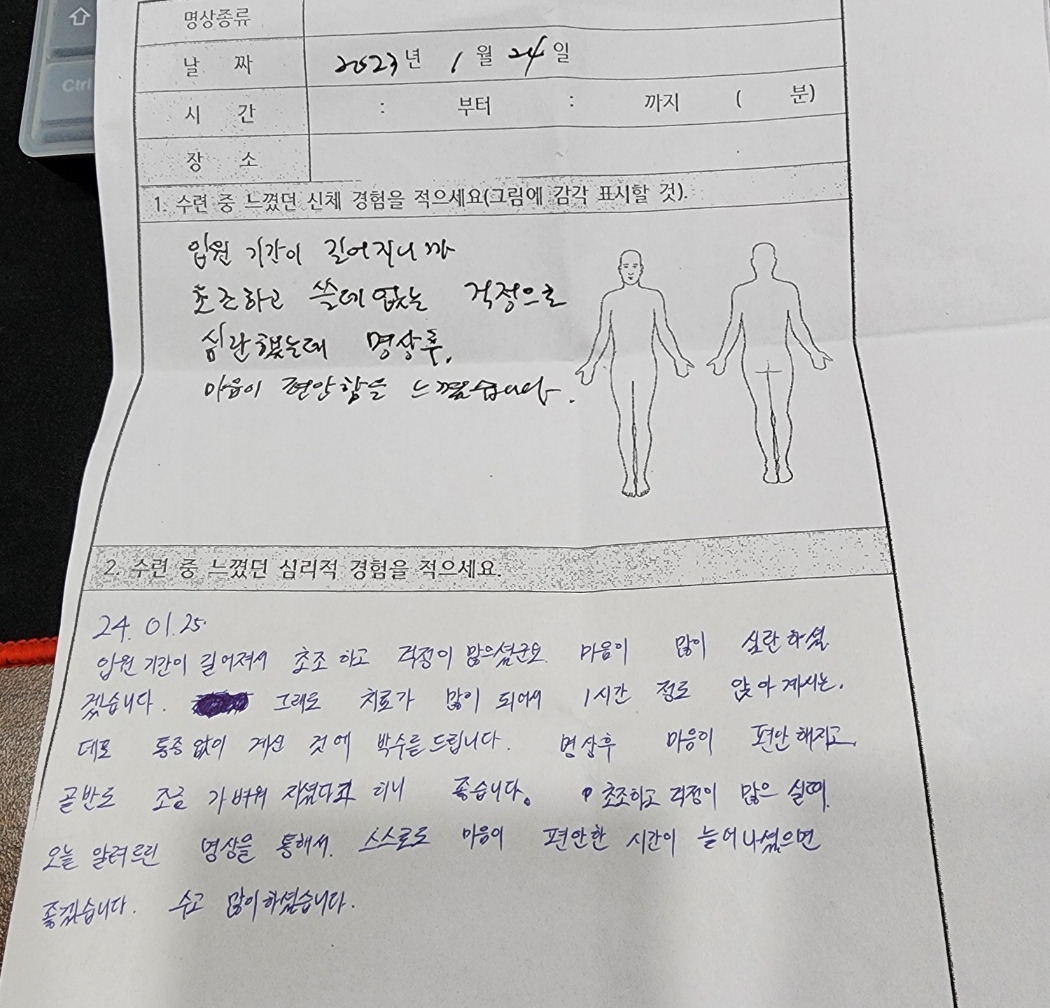 Ctrl
명상종류
날 짜 2023년 1월 24일
시 간 : 부터 : 까지 ( 분)
장 소
1. 수련 중 느꼈던 신체 경험을 적으세요(그림에 감각 표시할 것).
입원 기간이 길어지니까
초조하고 쓸데없는 걱정으로
심란했는데 명상후,
마음이 편안함을 느꼈습니다.
2. 수련 중 느꼈던 심리적 경험을 적으세요.
24. 01. 25.
입원 기간이 길어져서 초조하고 걱정이 많으셨군요. 마음이 많이 심란하셨
겠습니다. 그래도 치료가 많이 되어서 1시간 정도 앉아 계시는.
데도 통증 없이 계신 것에 박수를 드립니다. 명상후 마음이 편안해지고,
골반도 조금 가벼워 지셨다고 하니 좋습니다. 초조하고 걱정이 많으실때.
오늘 알려드린 명상을 통해서. 스스로도 마음이 편안한 시간이 늘어나셨으면
좋겠습니다. 수고 많이하셨습니다.